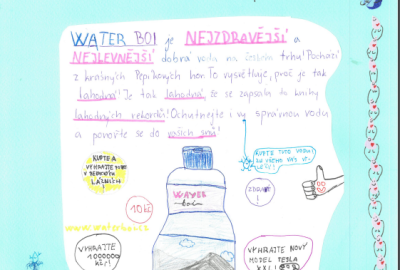 WATER BOI je NEJZDRAVĚJŠÍ a
NEJLEVNĚJŠÍ dobrá voda na českém trhu! Pochází
z krásných Pepíkových hor. To vysvětluje, proč je tak
lahodná! Je tak lahodná, že se zapsala do knihy
lahodných rekordů! Ochutnejte i vy správnou vodu
a ponořte se do vašich snů!
KUPTE A
VYHRAJTE POBYT
V
LÁZNÍCH!
KUPTE TUTO VODU!
ZDRAVÁ
!
10 Kč
WATER
boi
www.waterboi.cz
VYHRAJTE
1000000
Kč!
VYHRAJTE NOVÝ
MODEL TESLA
XXL!